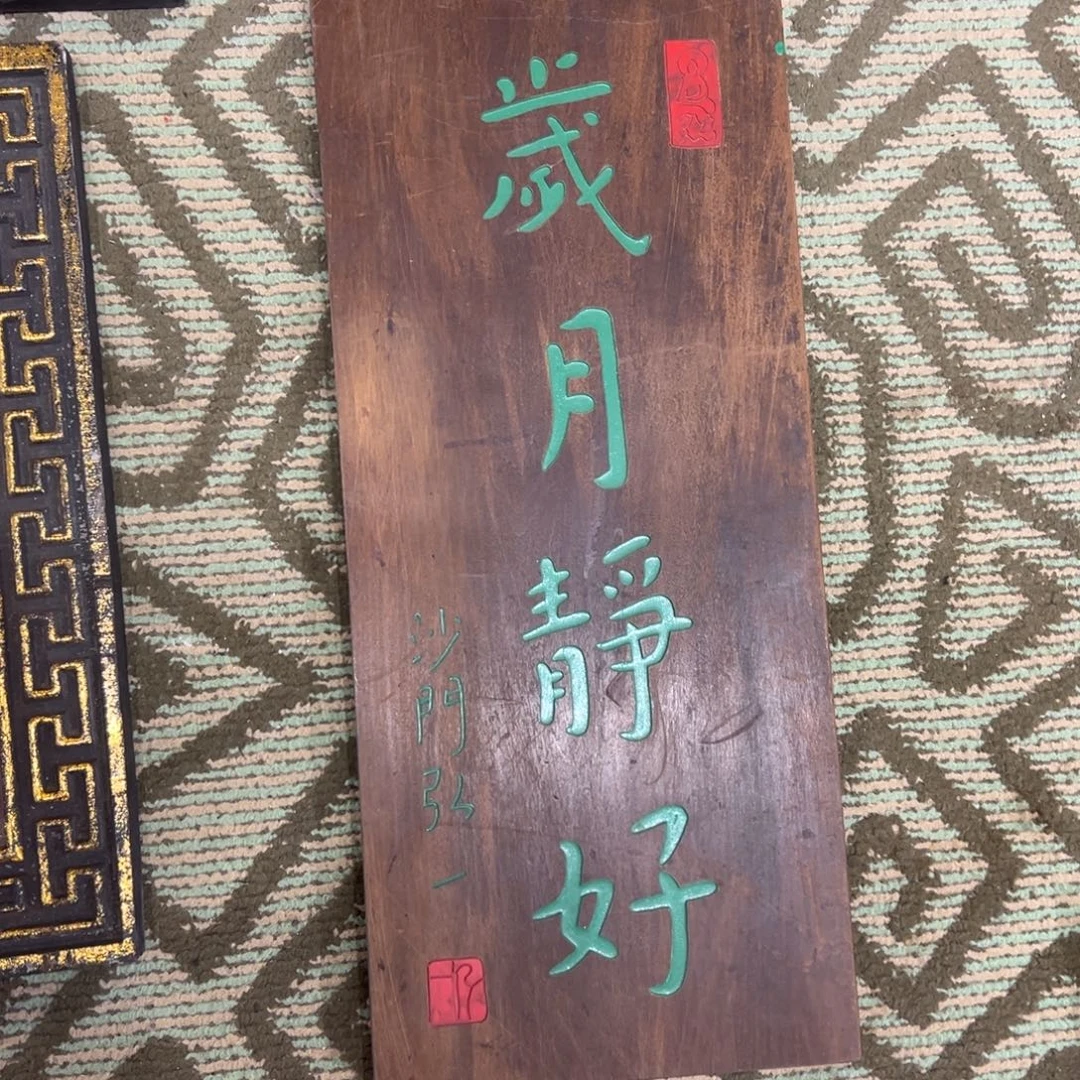 歲月靜好
沙門弘一